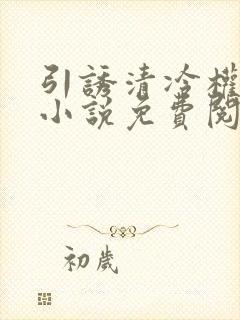 引誘清冷權
小說免費閱
初歲